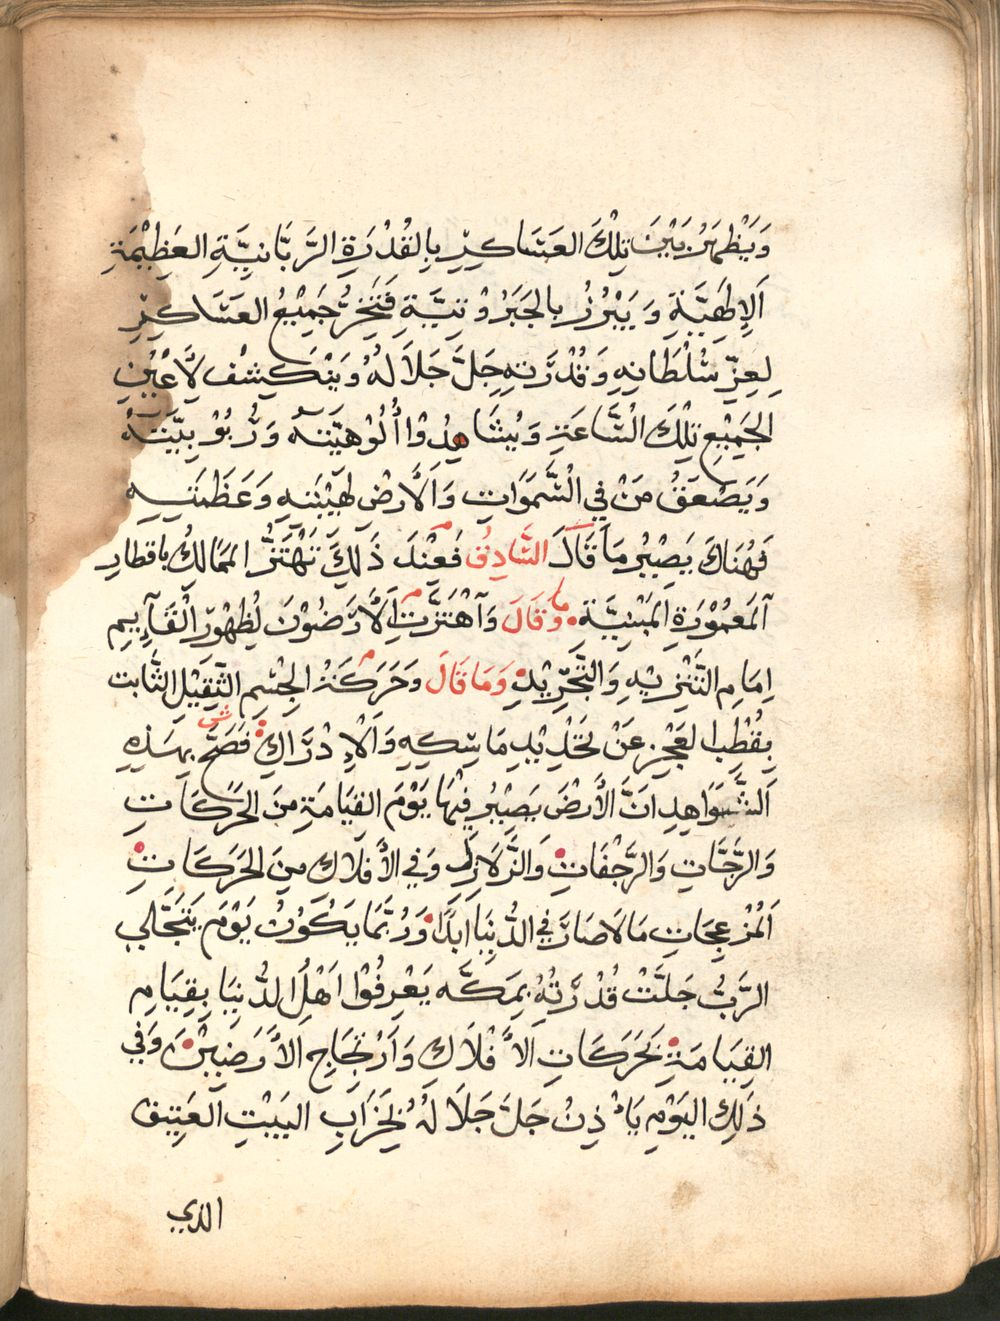 وَيَظْهَرُ بَيْنَ تِلْكَ العَسَاكِرِ بِالقُدْرَةِ الرَّبَّانِيَّةِ العَظِيْمَةِ
اَلإِلَهِيَّةِ وَيَبْرُزُ بِالجَبَرُوْتِيَّةِ فَتَخِرُّ جَمِيْعُ العَسَاكِرِ
لِعِزِّ سُلْطَانِهِ وَقُدْرَتِهِ جَلَّ جَلاَلَهُ وَيَنْكَشِفُ لِأَعْيُنِ
الجَمِيْعِ تِلْكَ السَّاعَةِ وَيُشَاهِدُوْا أُلُوْهِيَّتَهُ وَرُبُوْبِيَّتَهُ
وَيَصْعَقُ مَنْ فِي السَّمَوَاتِ وَاَلأَرْضِ لِهَيْبَتِهِ وَعَظَمَتِهِ
فَهُنَاكَ يَصِيْرُ مَا قَالَ السَّادِقُ فَعِنْدَ ذَلِكَ تَهْتَزُّ المَمَالِكُ بِاقطَارِ
اَلمَعْمُوْرَةِ المَبْنِيَّةِ وَقَالَ وَآهْتَزَّتِ اَلأَرَضُوْنَ لِظُهُوْرِ اَلْقَآيِمِ
اِمَامِ التَّنْزِيْهِ وَالتَّجْرِيْدِ وَمَا قَالَ وَحَرَكَةُ الجِسْمِ الثَّقِيْلِ الثَّابت
بِقُطْبِ العَجْزِ عَنْ تَحْدِيْدِ مَاسِكِهِ وَاَلْإِدْرَاكِ فَصَحَّ بِهَذِهِ
اَلشَّوَاهِدِ انَّ الأَرْضَ يَصِيْرُ فِيْهَا يَوْمَ القِيَامَةِ مِنَ الحَرَكَاتِ
وَالرَّجَّاتِ وَالرَّجْفَاتِ وَالزَّلَازِلِ وَفِي الأَفلَاكِ مِنَ الحَرَكَاتِ
اَلمُزْعِجَاتِ مَا لَا صَارَ فِي الدُّنْيَا اَبَدًا وَرُبَّمَا يَكُوْنُ يَوْمَ يَتَجَلَّى
الرَّبُّ جَلَّتْ قُدْرَتُهُ بِمَكَّه يَعْرِفُوْا اَهْلُ الدُّنِيَا بِقِيَامِ
القِيَامَةِ بَحَرَكَاتِ الأَفْلَاكِ وَاَرْتِجَاجِ الأَرَضِيْنَ وَفِي
ذَلِكَ اليَوْمِ يَأْذِنُ جَلَّ جَلَالَهُ بِخَرَابِ البَيْتِ اَلعَتِيْقِ
الذي